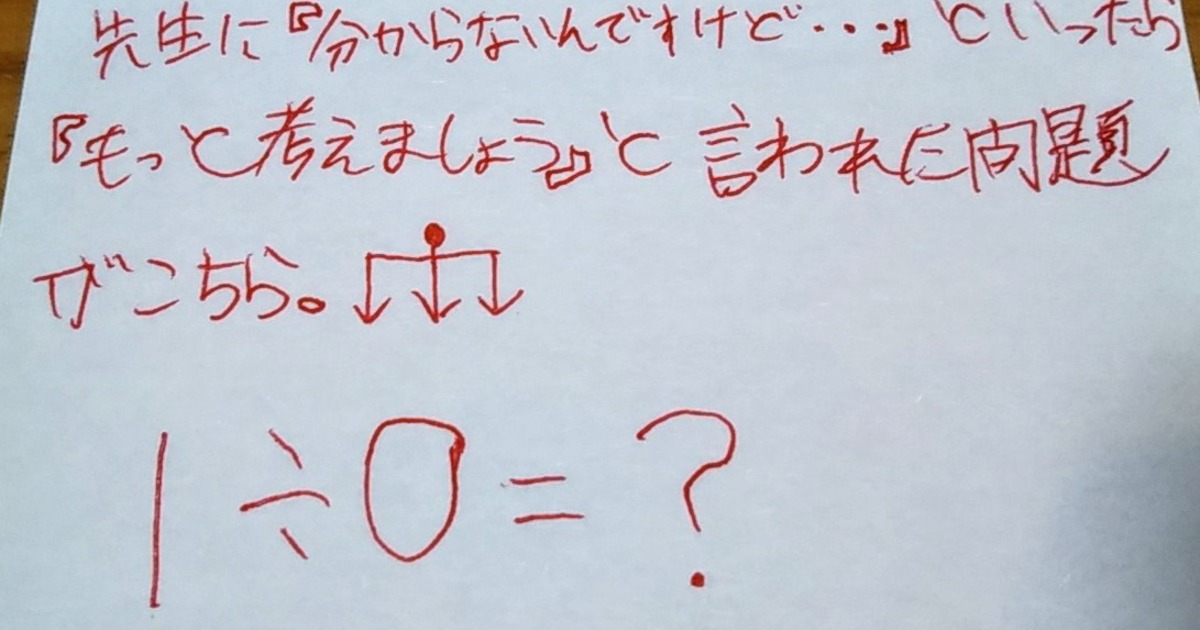 先生に『分からないんですけど・・・』といったら
『もっと考えましょう』と言われた問題
がこちら。
1÷0=?